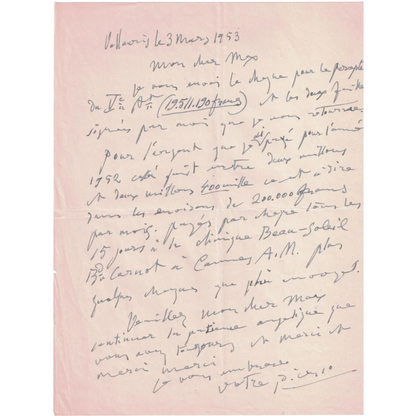 Vallauris le 3 Mars 1953
Mon cher Max
Je vous envoi le cheque pour le
du (1951.190francs) et les deux feuilles
signées par moi que je vous retourne
pour l'argent que j'ai payé pour l'année
1952 celà fait entre deux millions
et deux millions 400 mille c'est à dire
dans les environs de 200.000 francs
par mois. payés par cheque tous les
15 jours à la clinique Beau-Soleil
Bd Carnot à Cannes A.M. plus
quelques cheques que j'ai envoyés.
Veuillez mon cher Max
continuer la patience angelique que
vous avez toujours et merci et
merci merci
je vous embrasse
votre Picasso